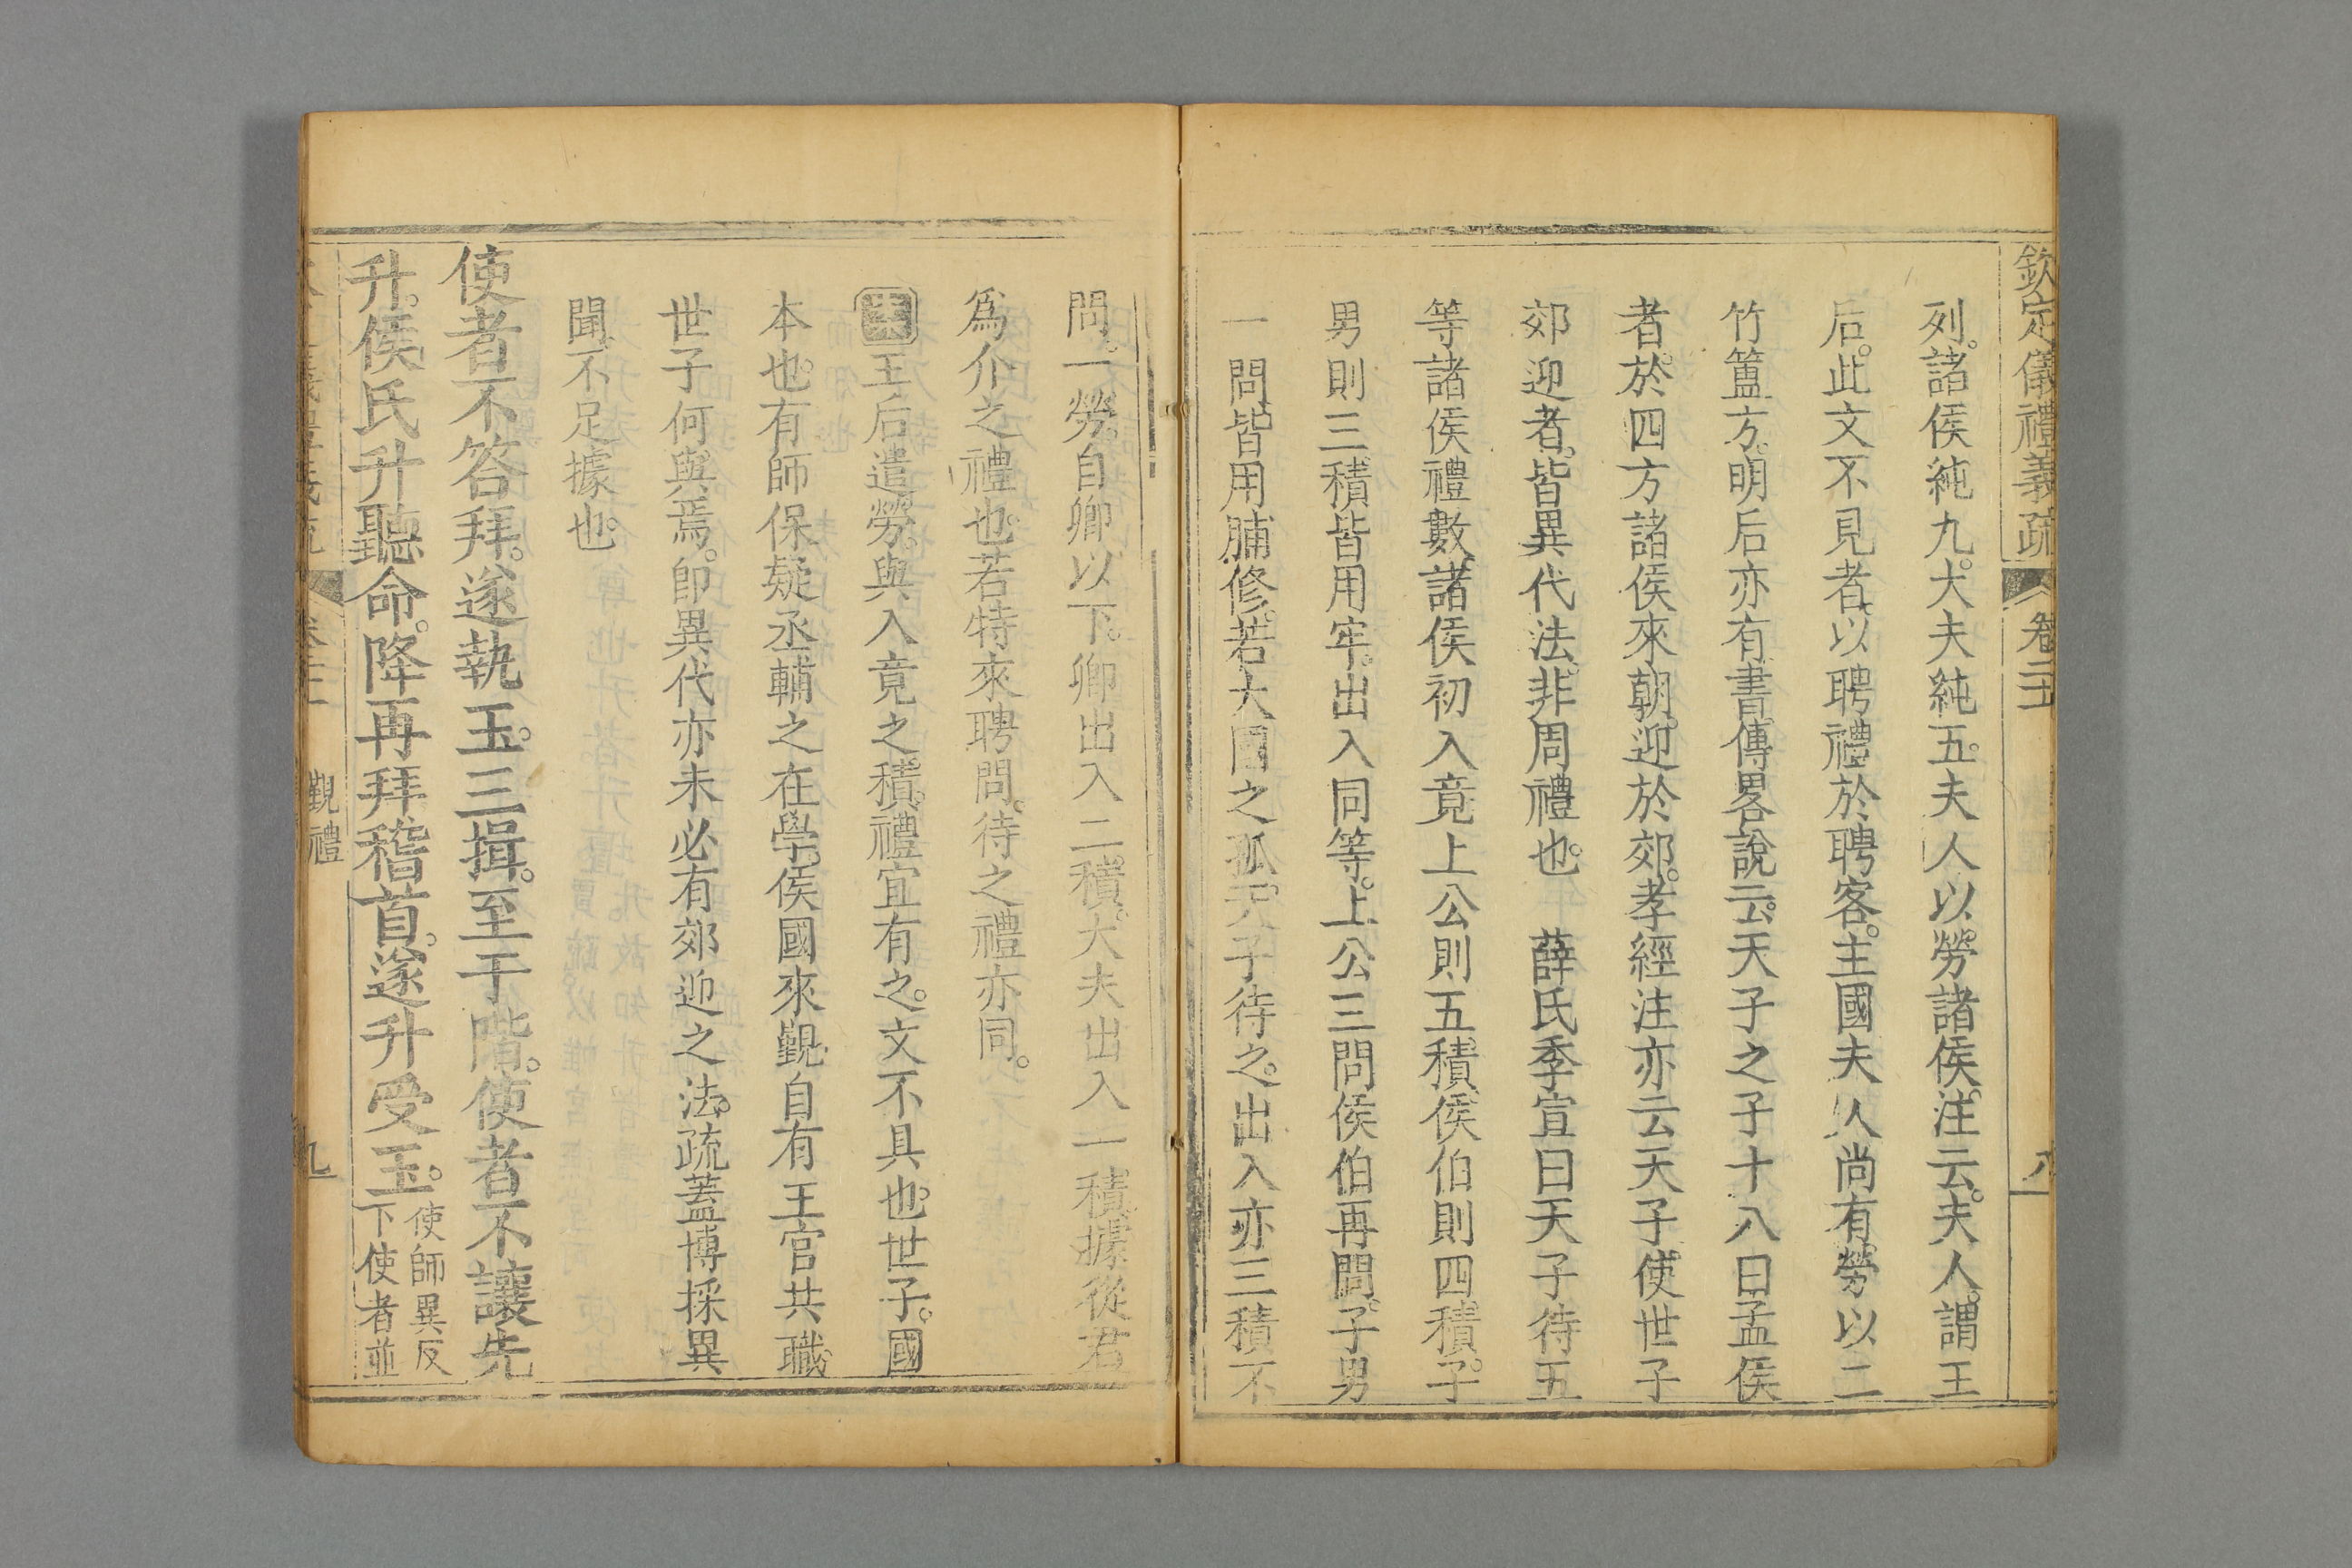 欽定儀禮義疏 卷二十 八
列。諸侯純九。大夫純五。夫人以勞諸侯。注云。夫人。謂王
后。此文不見者。以聘禮於聘客。主國夫人尚有勞。以二
竹簠方。明后亦有書傳畧說云。天子之子十八曰孟侯
者。於四方諸侯來朝。迎於郊。孝經注亦云天子使世子
郊迎者。皆異代法。非周禮也。 薛氏季宣曰天子待五
等諸侯禮數。諸侯初入竟上公則五積。侯伯則四積。子
男則三積皆用牢。出入同等。上公三問侯伯再問。子男
一問。皆用脯修。若大國之孤。天子待之。出入亦三積不
問。一勞。自卿以下。卿出入二積。大夫出入一積。據從君
爲介之禮也。若特來聘問。待之禮亦同。
案王后遣勞。與入竟之積。禮宜有之。文不具也。世子。國
本也。有師保疑丞輔之在學。侯國來覲。自有王官共職
世子何與焉。卽異代亦未必有郊迎之法。疏蓋博採異
聞。不足據也。
使者不答拜。遂執玉。三揖。至于階。使者不讓。先
升。侯氏升聽命。降再拜稽首。遂升受玉。使師異反
下使者並
覲禮 九